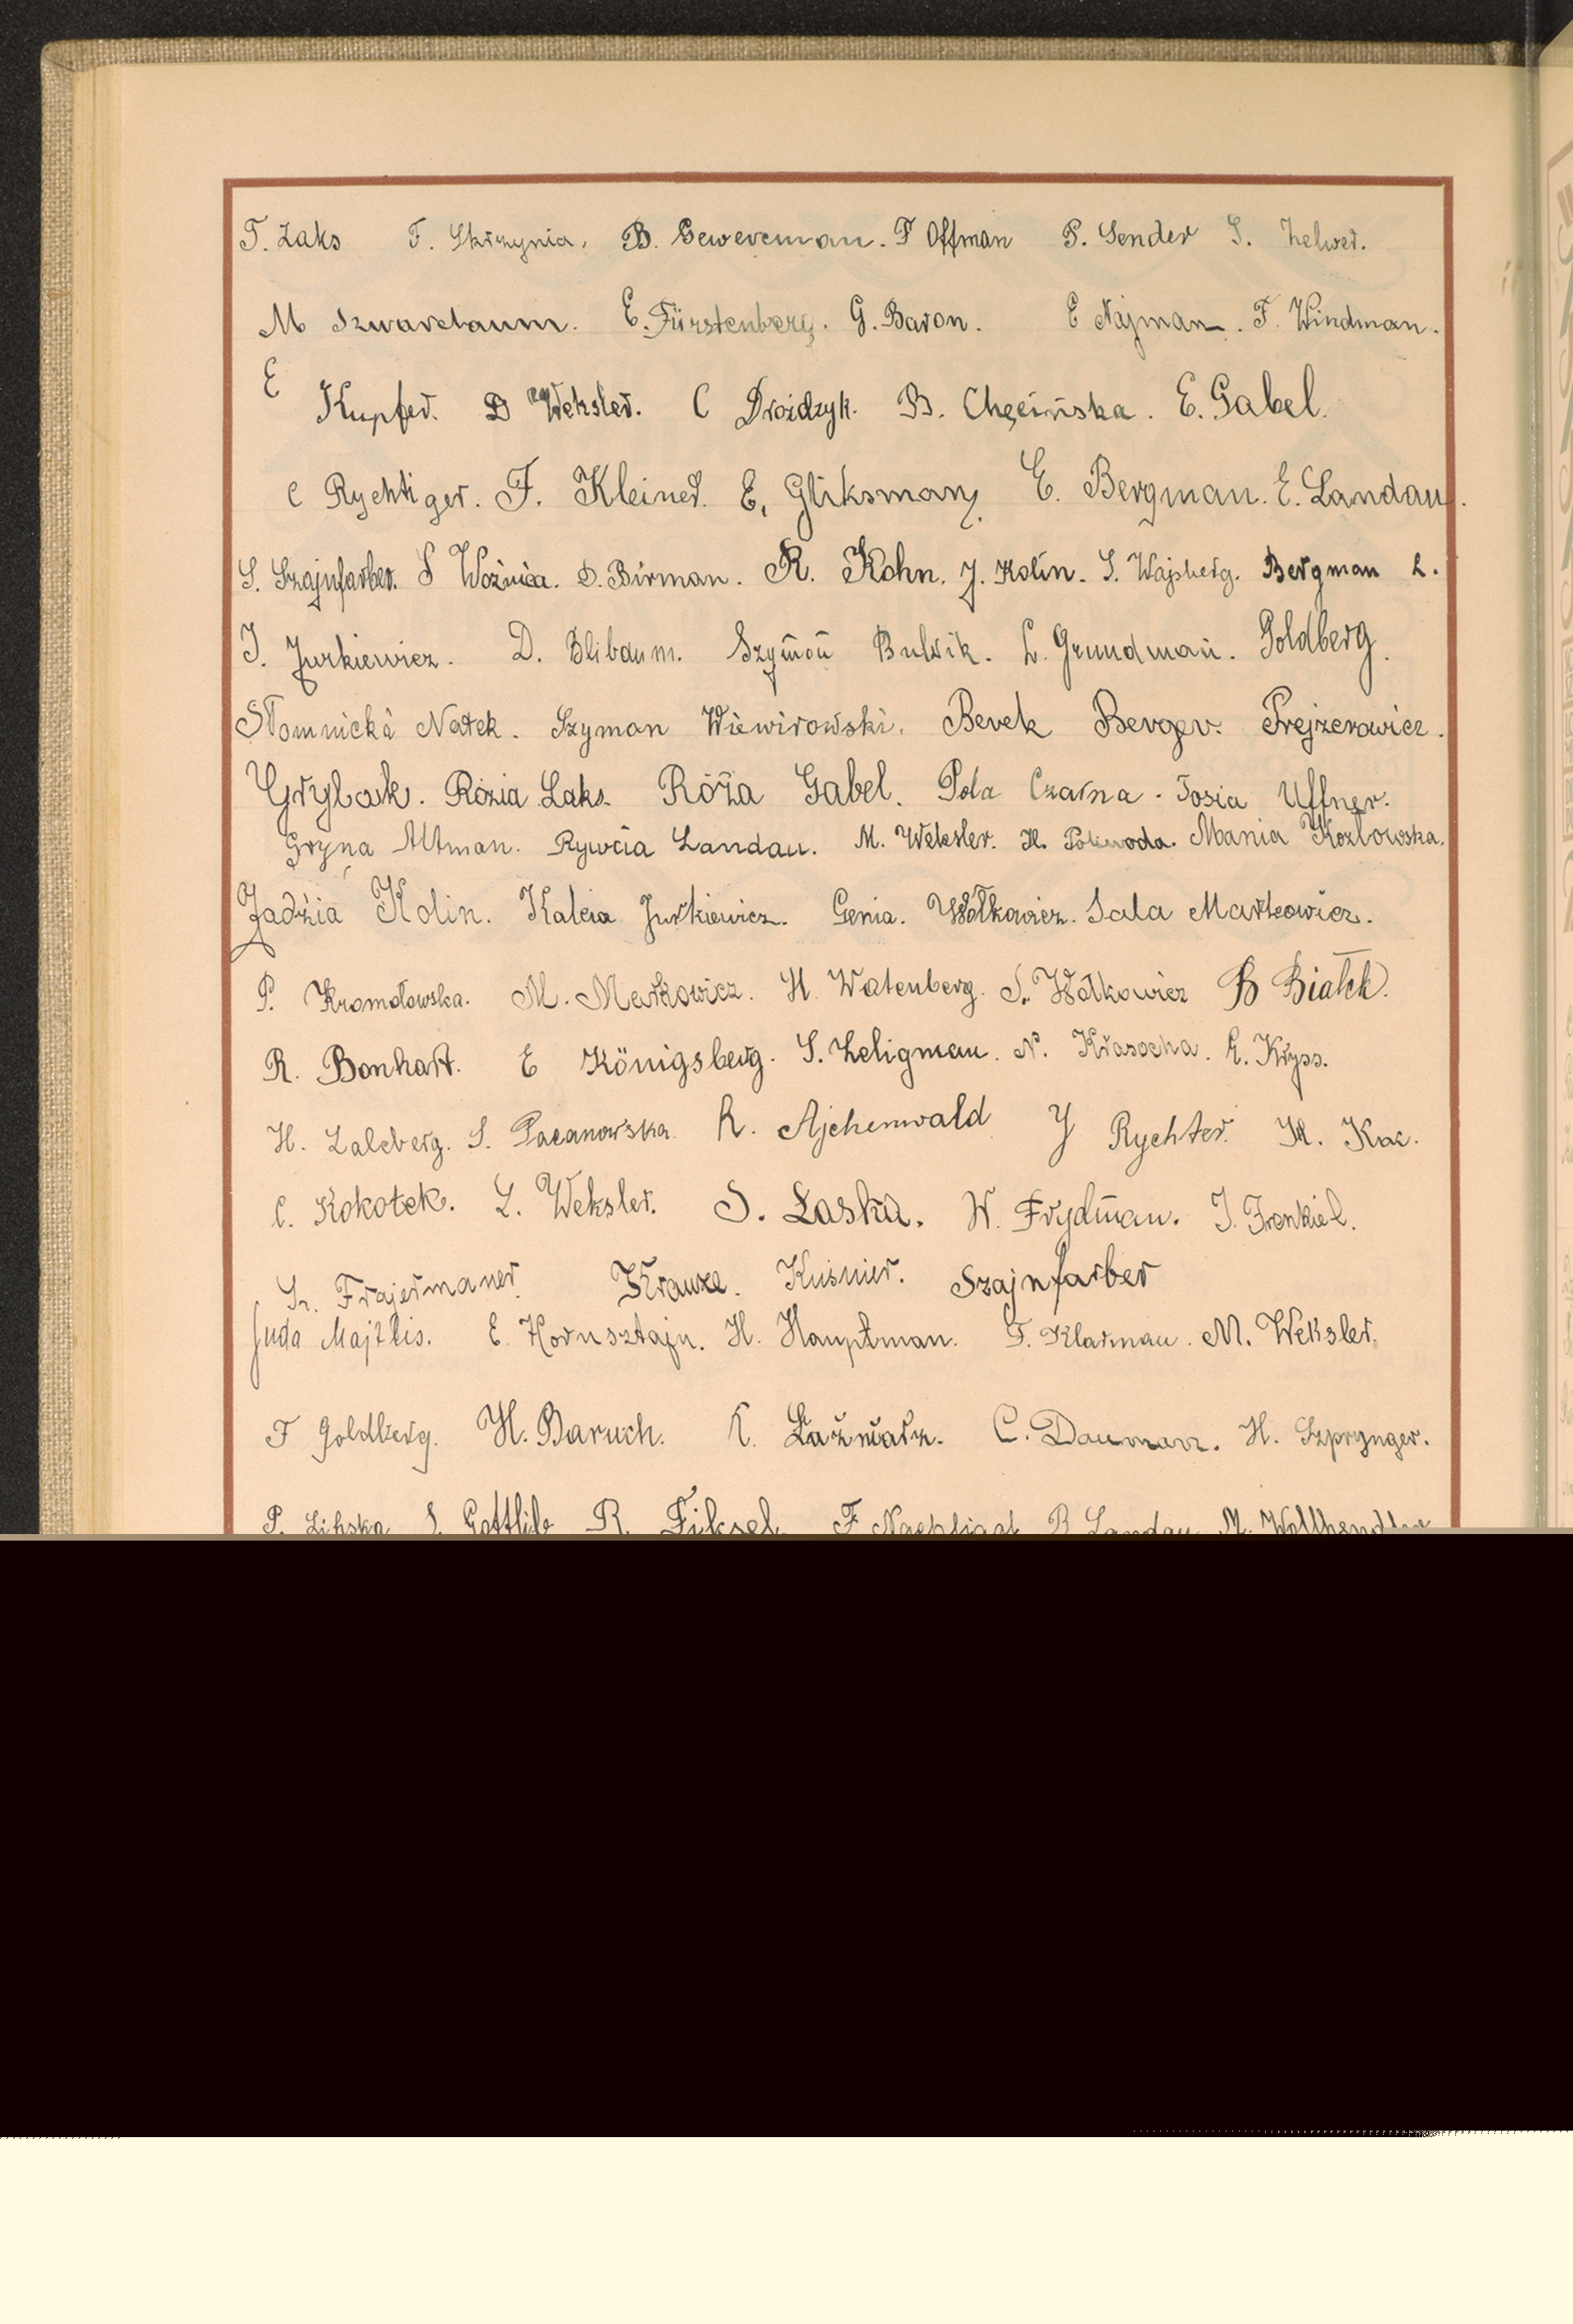 T. Zaks F. Skrzynia. B. Gewercman. F Offman P. Sender S. Zelwer.
M Szwarcbaum. E. Fürstenberg. G. Baron. E Najman. F. Windman.
E Kupfer. D Weksler. C Drożdzyk. B. Chęcińska. E. Gabel.
C Rychtiger. F. Kleiner. E. Gliksman. E. Bergman. E. Landau.
S. Szajnfarber. S Woźnica. D. Birman. R. Kohn. J. Kolin. S. Wajsberg. Bergman L.
J. Jurkiewicz. D. Blibaum. Szymon Bulwik. L. Grundman. Goldberg.
Słomnicka Natek. Szyman Wiewirowski. Berek Berger. Prejzerowicz.
Grylak. Rózia Laks. Róża Gabel. Pola Czarna. Tosia Uffner.
Gryna Altman. Rywcia Landau. M. Weksler. H. Mania Kozłowska.
Jadzia Kolin. Kalcia Jurkiewicz. Genia. Wołkowicz. Sala Markowicz.
P. Kromołowska. M. Merkowicz. H. Watenberg. S. Wołkowicz B Białek.
R. Bonhart. E Königsberg. S. Zeligman. N. Krasocka. E. Kryss.
H. Zalcberg. S. Pacanowska. R. Ajchenwald Y Rychter. M. Kac.
C. Kokotek. L. Weksler. S. Laska. W. Frydman. J. Frenkiel.
Sz. Frajermauer. Krauze. Kuśnier. Szajnfarber
Juda Majtlis. E. Hornsztajn. H. Hauptman. F. Klarman. M. Weksler.
F Goldberg. H. Baruch. K. Lażniarz. C. Dauman. H. Szprynger.
P. S. Gottlib R. Fiksel F Nachtigal B Landau M.